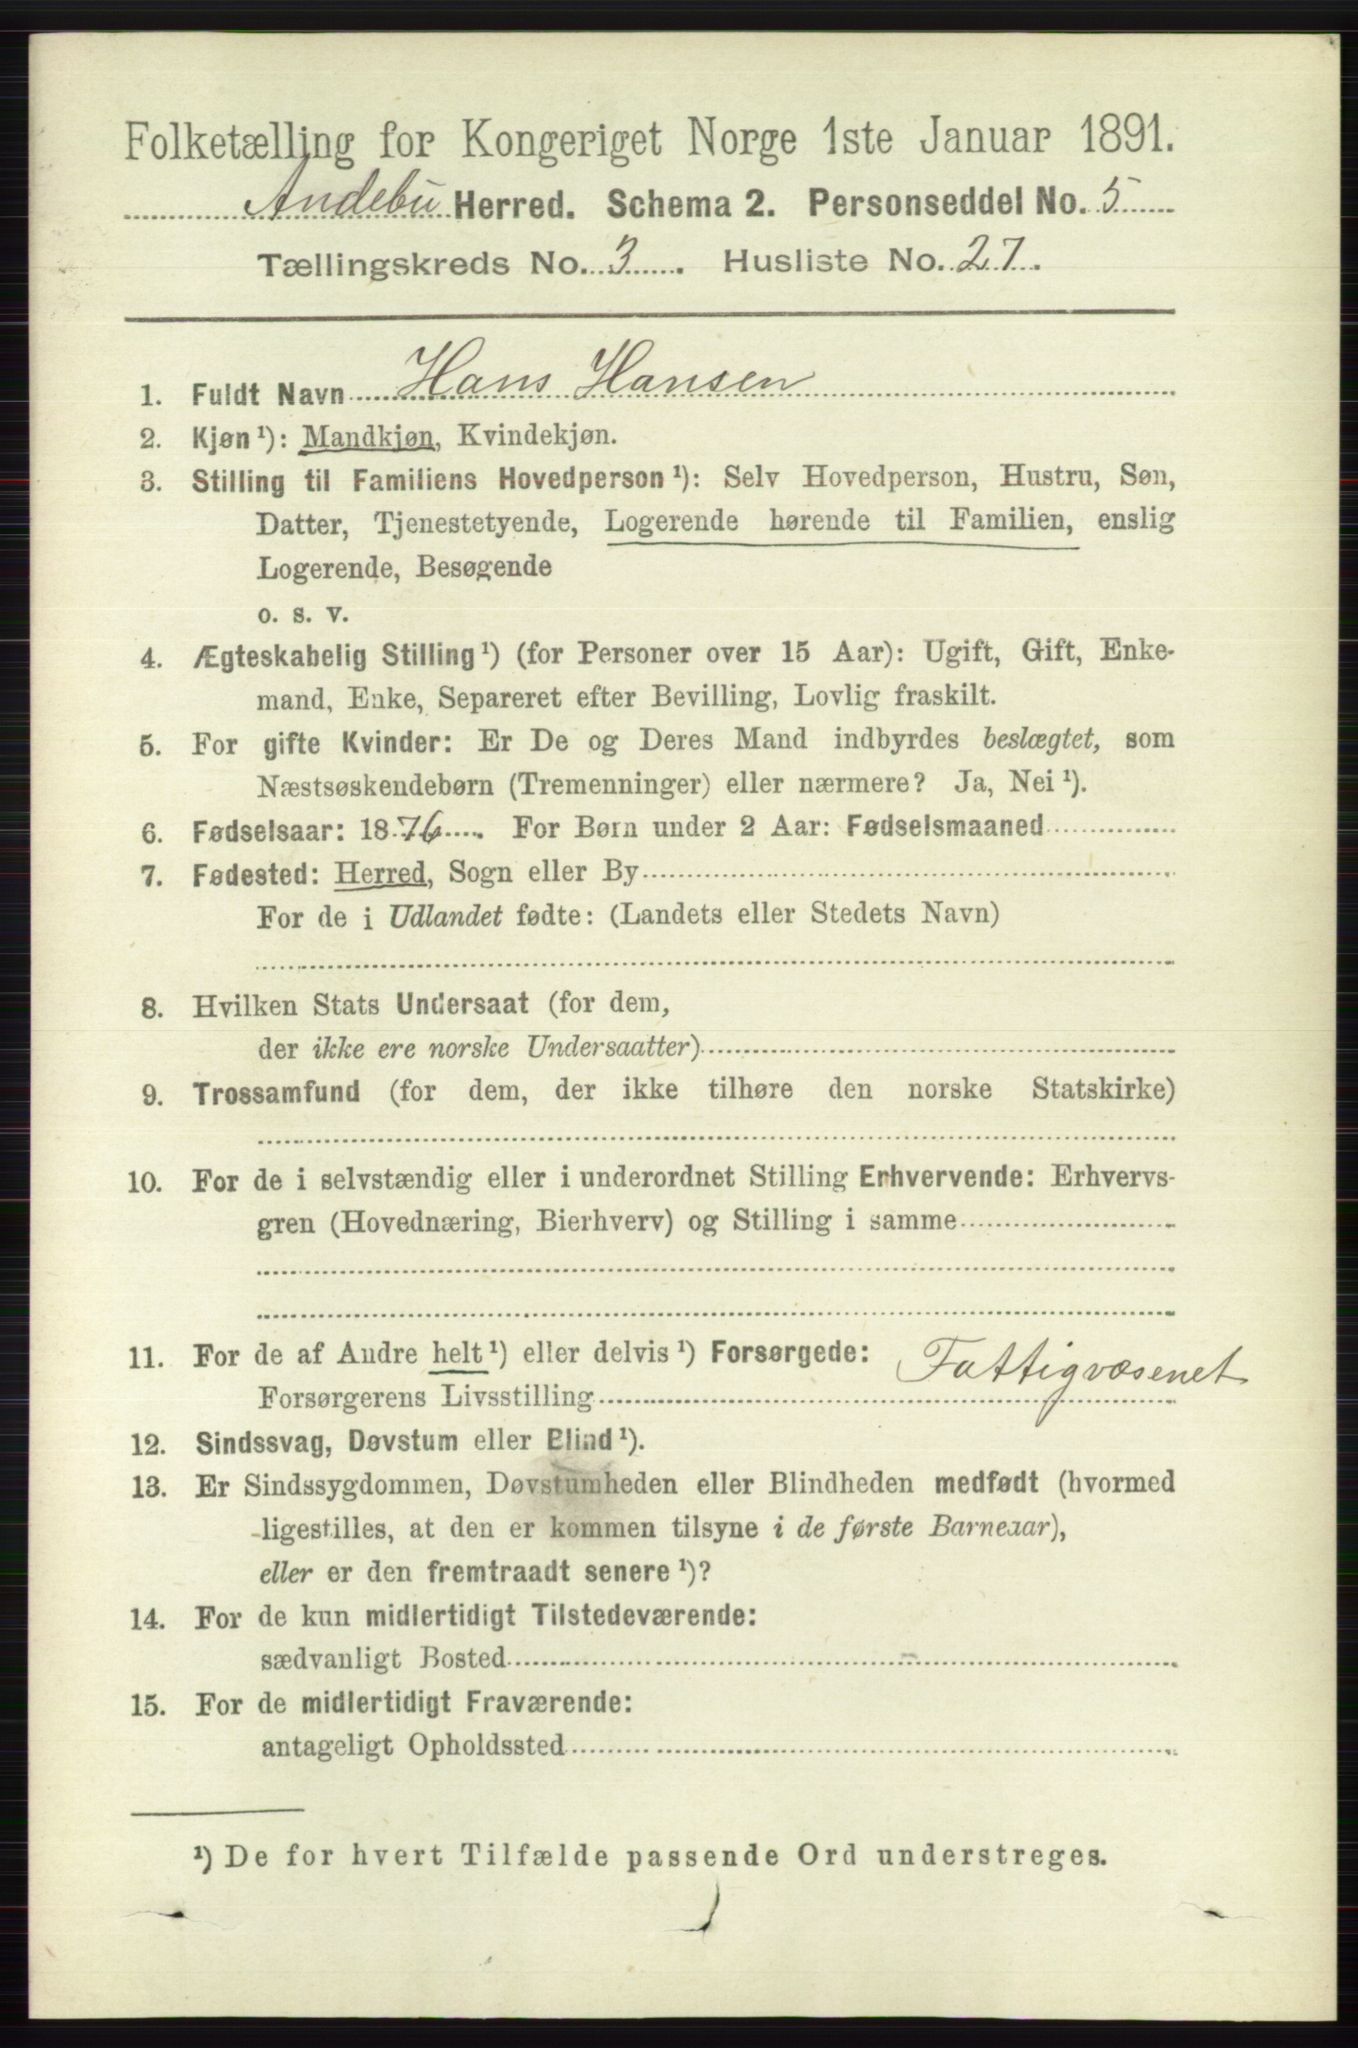 Folketælling for Kongeriget Norge 1ste Januar 1891.
Andebu Herred. Schema 2. Personseddel No. 5
Tællingskreds No. 3. Husliste No. 27.
1. Fuldt Navn Hans Hansen
2. Kjøn¹): Mandkjøn, Kvindekjøn.
3. Stilling til Familiens Hovedperson¹): Selv Hovedperson, Hustru, Søn,
Datter, Tjenestetyende, Logerende hørende til Familien, enslig
Logerende, Besøgende
o. s. v.
4. Ægteskabelig Stilling¹) (for Personer over 15 Aar): Ugift, Gift, Enke-
mand, Enke, Separeret efter Bevilling, Lovlig fraskilt.
5. For gifte Kvinder: Er De og Deres Mand indbyrdes beslægtet, som
Næstsøskendebørn (Tremenninger) eller nærmere? Ja, Nei¹).
6. Fødselsaar: 1876. For Børn under 2 Aar: Fødselsmaaned
7. Fødested: Herred, Sogn eller By
For de i Udlandet fødte: (Landets eller Stedets Navn)
8. Hvilken Stats Undersaat (for dem,
der ikke ere norske Undersaatter)
9. Trossamfund (for dem, der ikke tilhøre den norske Statskirke)
10. For de i selvstændig eller i underordnet Stilling Erhvervende: Erhvervs-
gren (Hovednæring, Bierhverv) og Stilling i samme
11. For de af Andre helt¹) eller delvis¹) Forsørgede: Fattigvæsenet
Forsørgerens Livsstilling
12. Sindssvag, Døvstum eller Blind¹).
13. Er Sindssygdommen, Døvstumheden eller Blindheden medfødt (hvormed
ligestilles, at den er kommen tilsyne i de første Barneaar),
eller er den fremtraadt senere¹)?
14. For de kun midlertidigt Tilstedeværende:
sædvanligt Bosted
15. For de midlertidigt Fraværende:
antageligt Opholdssted
¹) De for hvert Tilfælde passende Ord understreges.